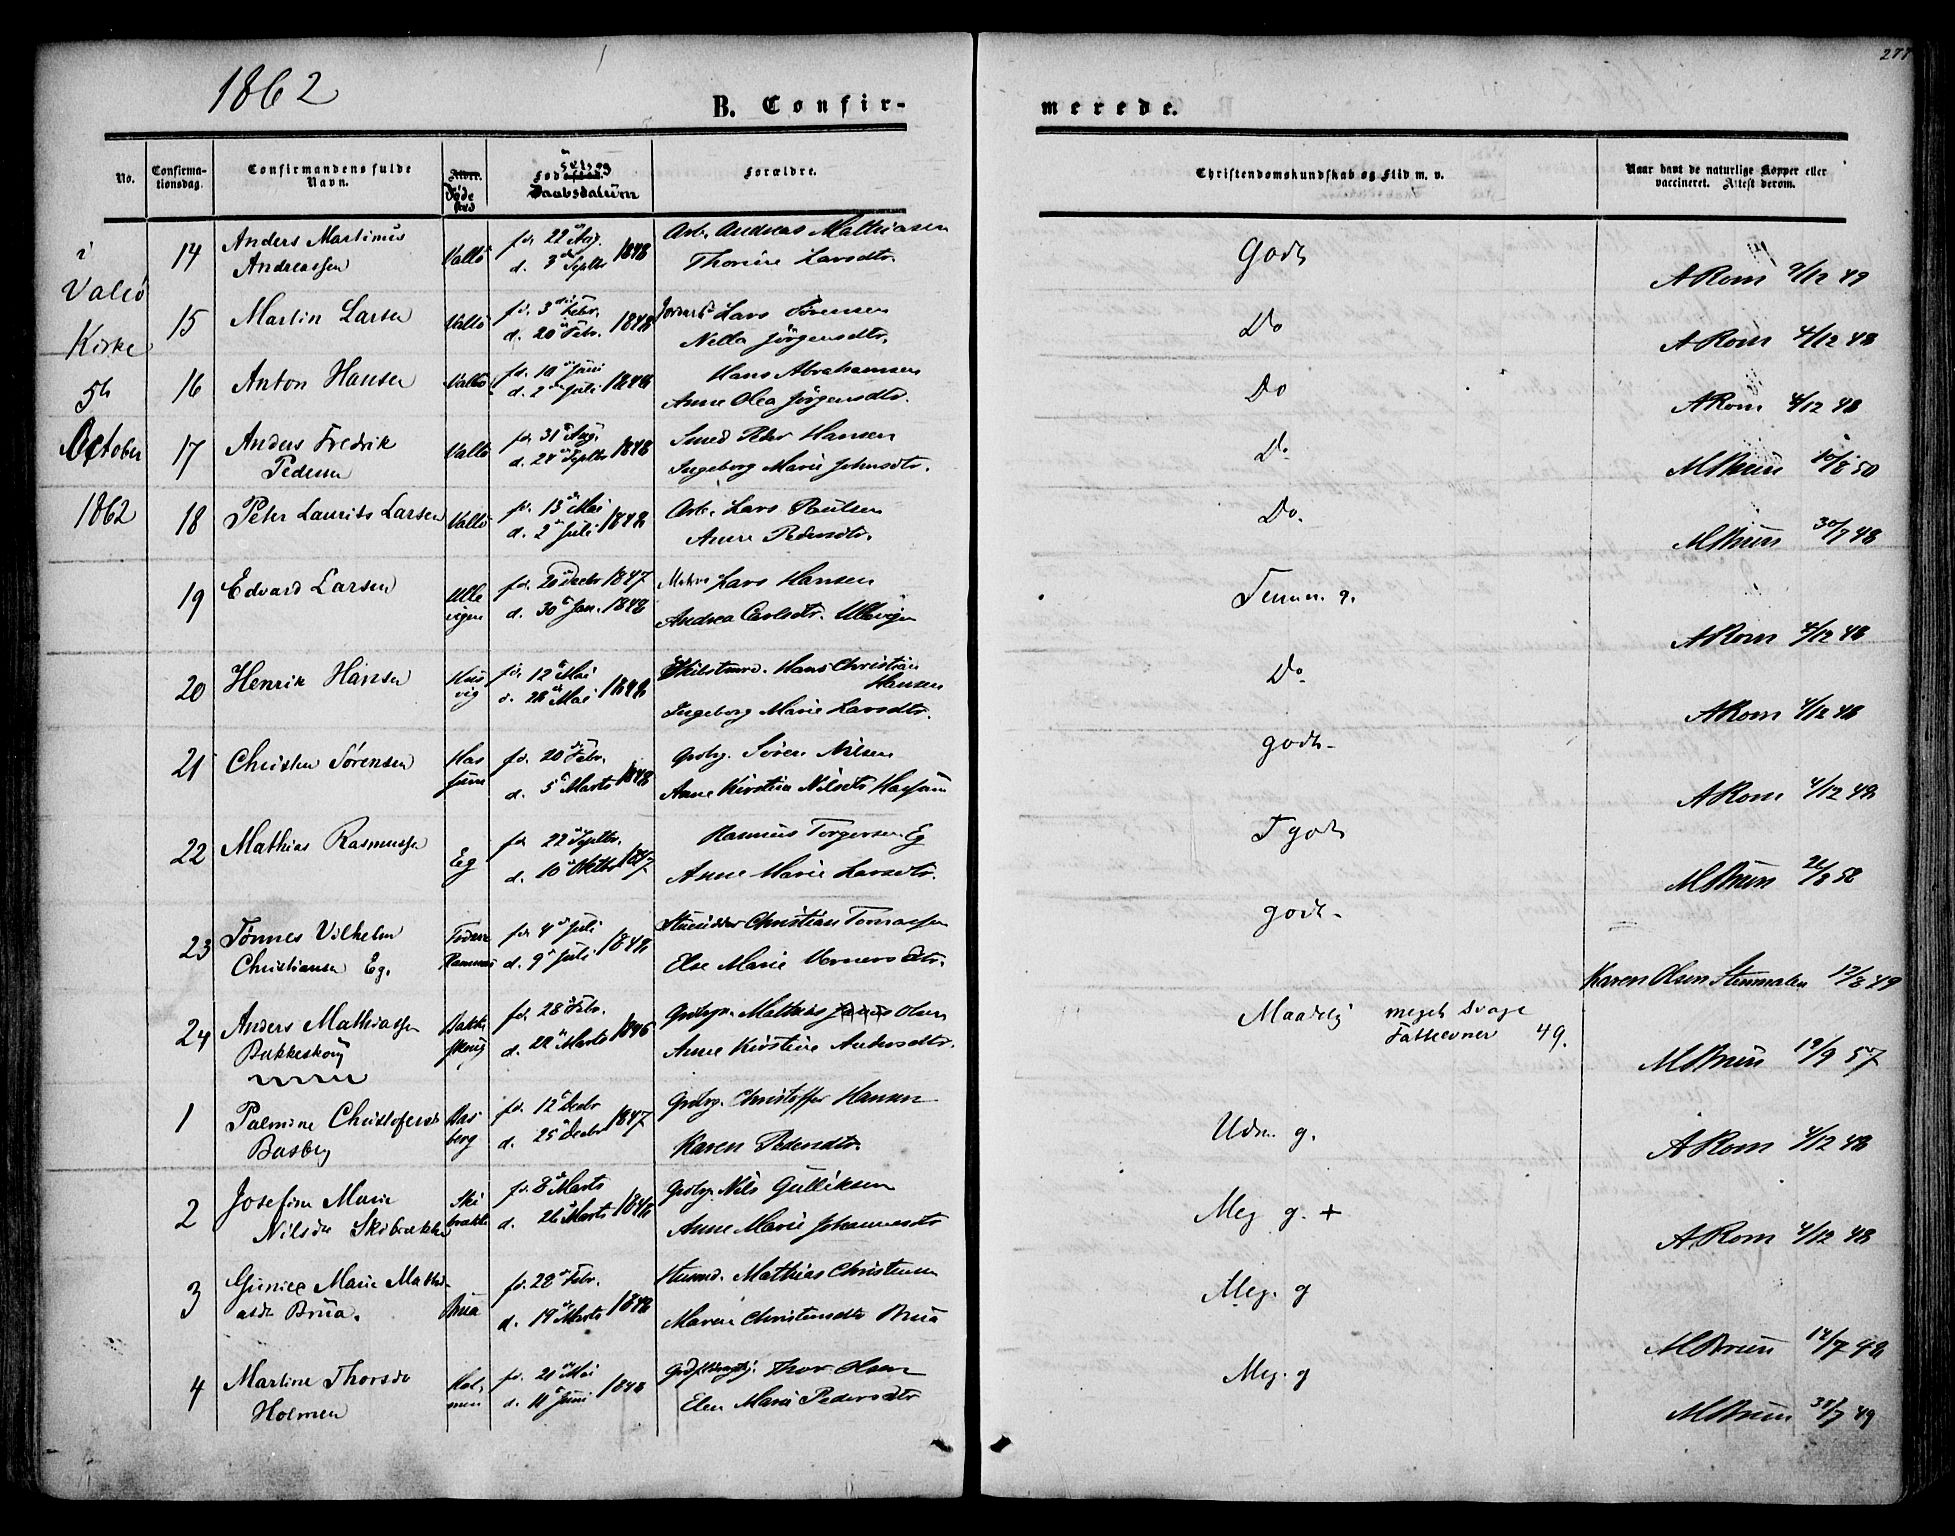 277
1862
B. Confir-
merede.
No.
Confirma-
tionsdag.
Confirmandens fulde
Navn.
Alder.
Føde
sted
Føds. og
Daabsdatum
Forældre.
Christendomskundskab og Flid m. v.
Naar havt de naturlige Kopper eller
vaccineret. Attest derom.
i
Valø
Kirke
5te
October
1862
14 Anders Martinus
Andreassen
Vallö
fd. 22 Aug.
d. 3 Septbr 1848
Arb. Andreas Mathiasen
Thorine Larsdtr.
Godt
ARom 9/12 49
15 Martin Larsen
Vallö
fd. 3 Febr.
d. 20 Febr. 1848
Lars Sørensen
Nella Jörgensdtr.
Do
ARom 4/12 48
16 Anton Hansen
Vallö
fd. 10 Juni
d. 2 Juli 1848
Hans Abrahamsen
Anne Olea Jörgensdtr.
Do
ARom 4/12 48
17 Anders Fredrik
Pedersen
Vallö
fd. 31 Aug.
d. 24 Septbr 1848
Smed Peder Hansen
Ingeborg Marie Johnsdtr.
Do
MBruun 10/8 50
18 Peter Laurits Larsen
Vallö
fd. 13 Mai
d. 2 Juli 1848
Arb. Lars Paulsen
Anne Pedersdtr.
Do.
MBruun 30/7 48
19 Edvard Larsen
Ulle
vigen
fd. 20 Decbr 1847
d. 30 Jan. 1848
Lars Hansen
Andrea Carlsdtr. Ullevigen
Temmen. g.
ARom 4/12 48
20 Henrik Hansen
Hus
vig
fd. 12 Mai
d. 28 Mai 1848
Hans Christian
Hansen
Ingeborg Marie Larsdtr.
Do
ARom 4/12 48
21 Christen Sørensen
Has
sum
fd. 20 Febr.
d. 5 Marts 1848
Grdbg. Sören Nilsen
Anne Kirstine Nilsdtr Hassum
godt
ARom 4/12 48
22 Mathias Rasmussen
Eg
fd. 22 Septbr.
d. 10 Octbr 1847
Rasmus Torgersen Eg
Anne Marie Larsdtr.
T godt
MBruun 26/8 52
23 Tönnes Vilhelm
Christiansen Eg.
fd. 4 Juli
d. 9 Juli 1848
Christian Tomassen
Else Marie Verners Dtr.
godt
Karen Olsen Stenmalen 12/8 49
24 Anders Mathiassen
Bakkeskoug
Bakke
skoug
fd. 28 Febr.
d. 22 Marts 1846
Grdbgn. Mathias Olsen
Anne Kirstine Andersdtr.
Maadelig meget svage
Fatteevner 49.
MBruun 19/9 57
1 Palmine Christofersd
Basberg
Bas
berg
fd. 12 Decbr
d. 25 Decbr 1847
Grdbg. Christoffer Hansen
Karen Pedersdtr.
Udm. g.
ARom 4/12 48
2 Josefine Marie
Nilsdtr Skibrække
Ski
brække
fd. 8 Marts
d. 26 Marts 1848
Grdbg. Nils Gulliksen
Anne Marie Johannesdtr
Meg g. +
ARom 4/12 48
3 Gunild Marie Mathi-
asdtr Brua.
Brua
fd. 22 Febr.
d. 19 Marts 1848
Husmd. Mathias Christensen
Maren Christensdtr Brua
Meg. g
MBruun 14/7 48
4 Martine Thorsdtr
Holmen
Hol-
men
fd. 21 Mai
d. 11 Juni 1848
Thor Olsen
Elen Marie Pedersdtr
Meg. g
MBruun 30/7 49